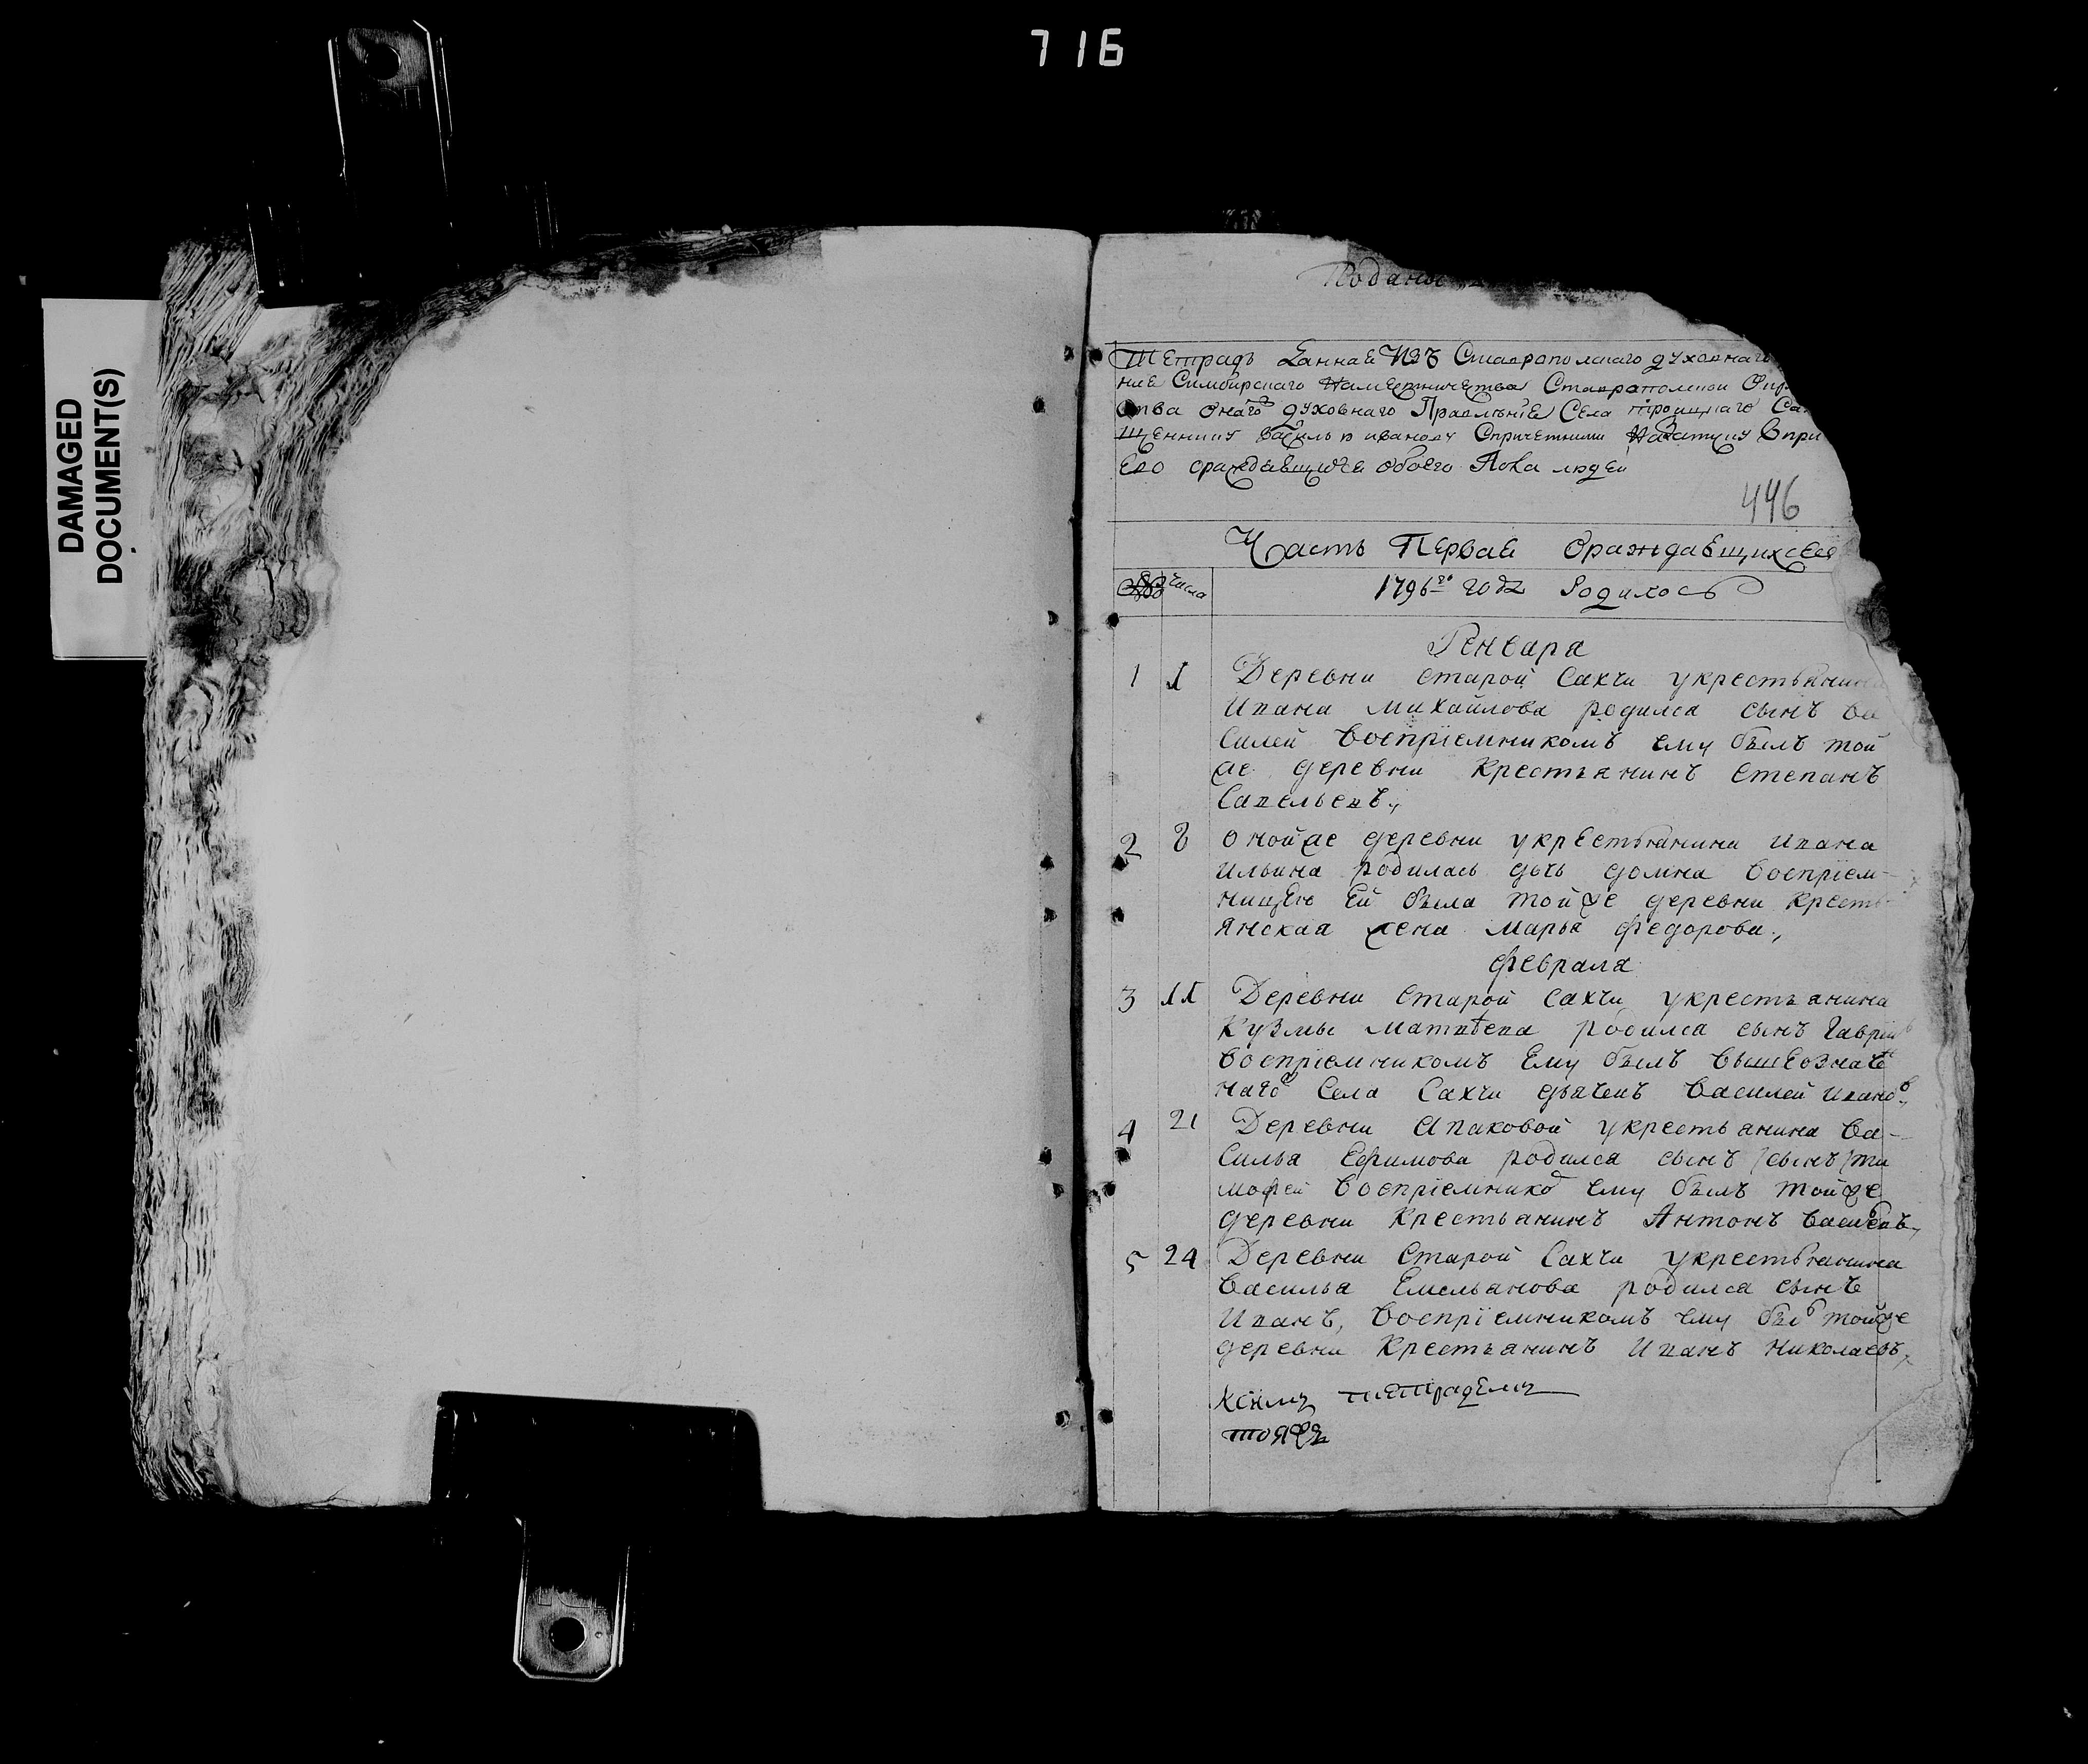 716
DAMAGED
DOCUMENT(S)
Подано
Тетрадь Данная Изъ Ставропольскаго духовнаго
ние Симбирскаго Наместничества Ставропольской
онаго духовнаго Правленіе Села троицкаго
щеннику василью иванову Спричетники На записку впри
Его ораждавшихся обоего Пола людей
446
Часть Первая Ораждавшихся
№ числа
1796го года Родилось
Генваря
1 1 Деревни старой Сахчи укрестьянина
Ивана михайлова родился сынъ Ва
силей Воспріемникомъ ему былъ той
же деревни крестьянинъ степанъ
Савельевъ,
2 8 оной же деревни укрестьянина Ивана
Ильина родилась дочь домна Воспріем-
ницею Ей была той же деревни крестъ-
янская жена Марья федорова,
февраля
3 11 Деревни Старой Сахчи укрестьянина
Кузмы матвѣева родился сынъ Гаврил
Воспріемникомъ Ему былъ Вышеозначен
наго Села Сахчи дьячекъ Василей ивановъ,
4 21 Деревни Апаковой укрестьянина Ва-
силья Ефимова родился сынъ /сынъ/ти
мофей Воспріемнико ему былъ той же
деревни Крестьянинъ Антонъ
5 24 Деревни Старой Сахчи укрестьянина
Василья Емельянова родился сынъ
Иванъ, Воспріемникомъ ему былъ той же
деревни Крестьянинъ Иванъ Николаевъ,
Ксимъ тетрадемъ
тояжъ